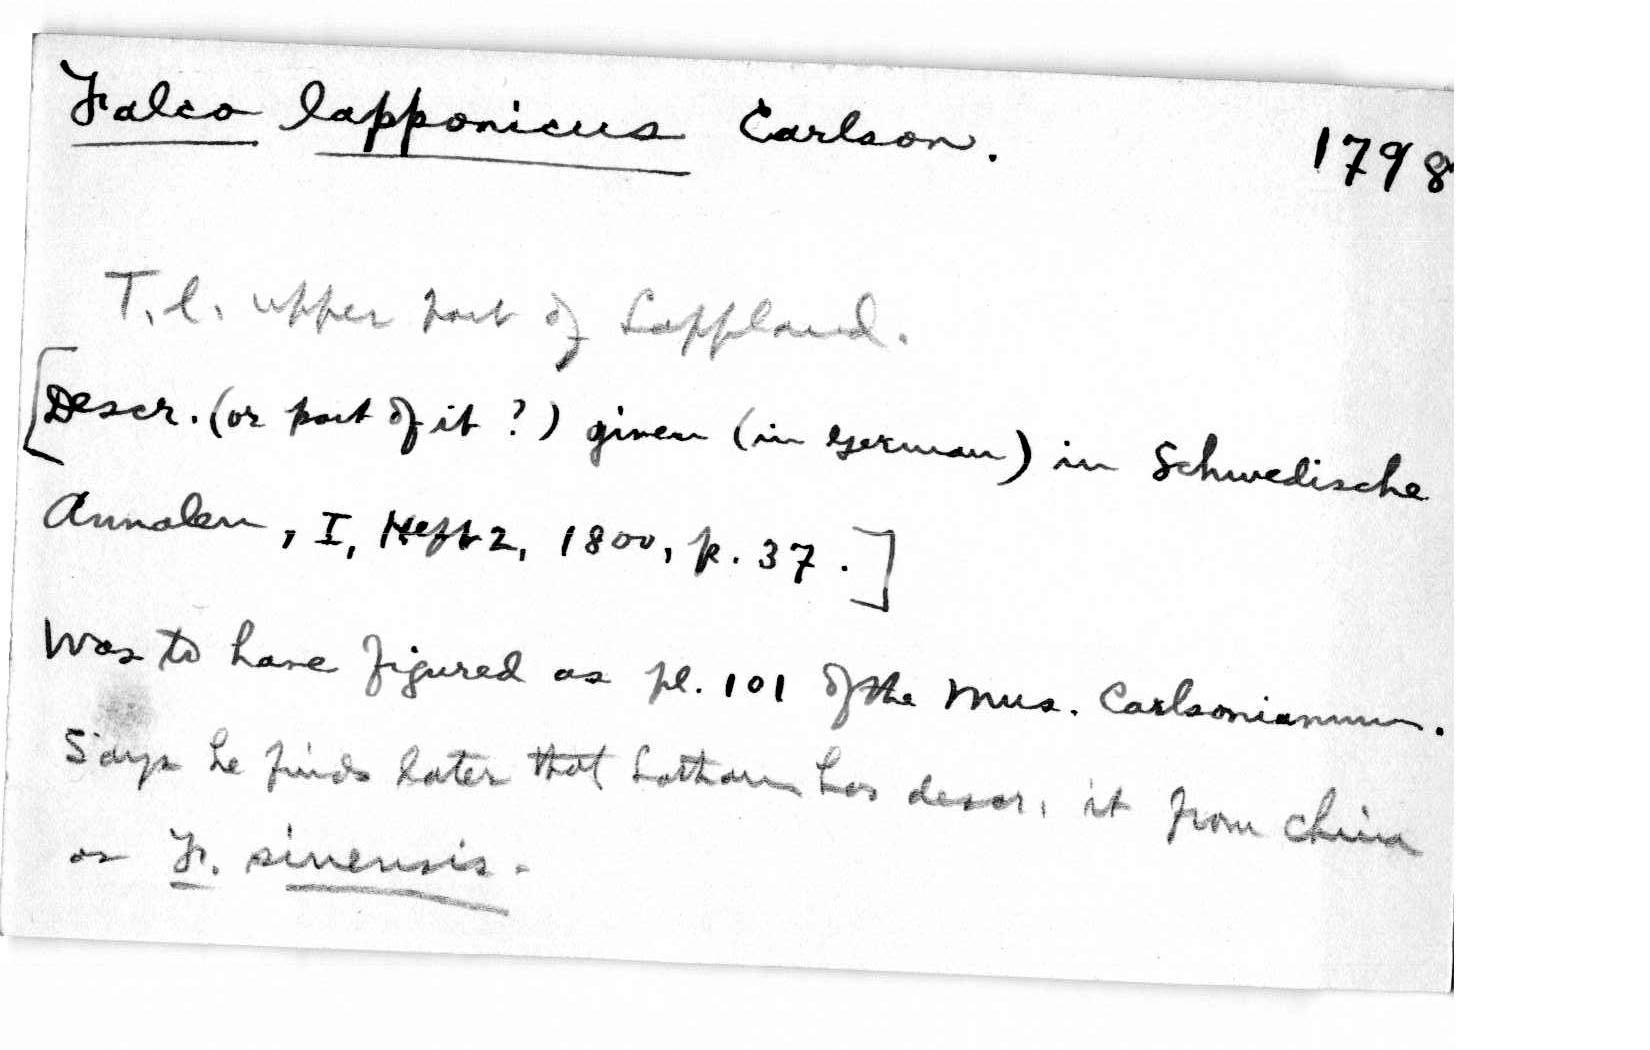 Falco lapponicus Carlson. 1798
T. l. upper part of Lappland.
[Descr. (or part of it?) given (in German) in Schwedische
Annalen, I, Heft 2, 1800, p. 37.]
Was to have figured as pl. 101 of the Mus. Carlsonianum.
Says he finds later that Latham has descr. it from China
as F. sinensis.